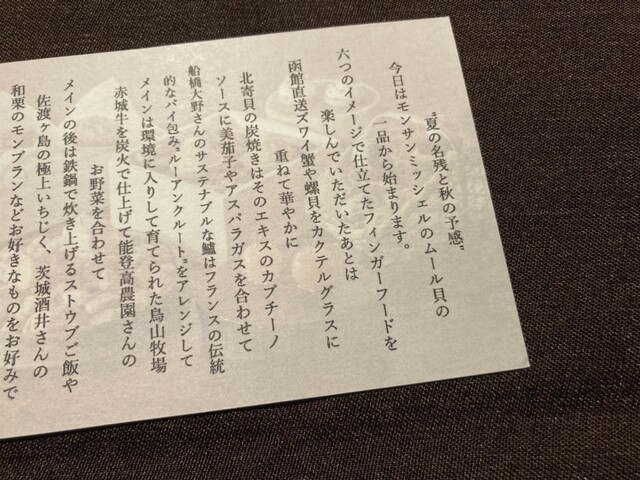 "夏の名残と秋の予感"
今日はモンサンミッシェルのムール貝の
一品から始まります。
六つのイメージで仕立てたフィンガーフードを
楽しんでいただいたあとは
函館直送ズワイ蟹や螺貝をカクテルグラスに
重ねて華やかに
北寄貝の炭焼きはそのエキスのカプチーノ
ソースに美茄子やアスパラガスを合わせて
船橋大野さんのサステナブルな鱸はフランスの伝統
的なパイ包み"ルーアンクルート"をアレンジして
メインは環境に入りして育てられた鳥山牧場
赤城牛を炭火で仕上げて能登高農園さんの
お野菜を合わせて
メインの後は鉄鍋で炊き上げるストウブご飯や
佐渡ヶ島の極上いちじく、茨城酒井さんの
和栗のモンブランなどお好きなものをお好みで